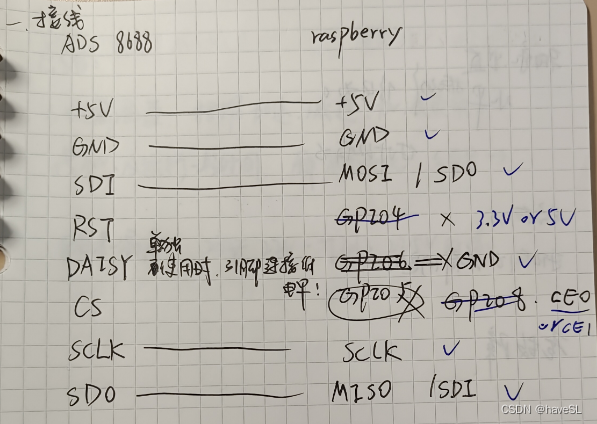 一、接线
ADS 8688 raspberry
+5V +5V ✓
GND GND ✓
SDI MOSI / SDO ✓
RST GPIO4 × 3.3V or 5V
DAISY 单独使用时, 引脚连接低电平! GPIO6 => GND ✓
CS GPIO5 GPIO8. CE0
or CE1
SCLK SCLK ✓
SDO MISO /SDI ✓
CSDN @haveSL